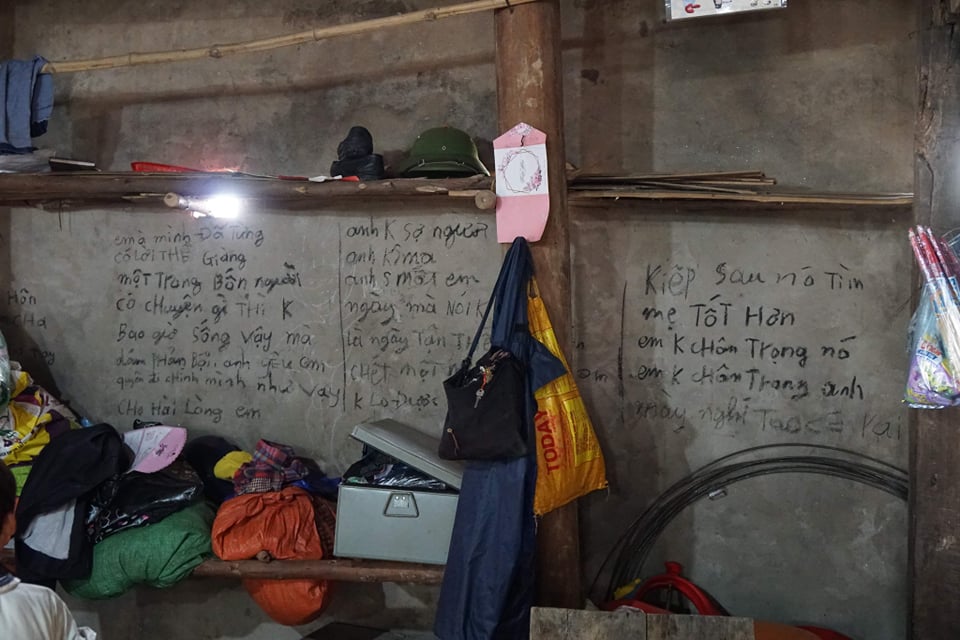 em à mình Đã Từng
có Lời THề Giang
một Trong Bốn người
có chuyện gì Thì K
Bao giờ Sống vậy mà
dám PHản Bội. anh yêu em
quên đi chính mình như vậy
CHo Hài Lòng em
anh K Sợ người
anh K
anh S mất em
ngày mà NOI K
là ngày Tân
chết
K Lo Được
Hôn
CHa
om
Kiếp Sau nó Tìm
mẹ TốT Hơn
em K CHôn Trọng nó
em K CHôn Trọng anh
mày nghỉ
TODAY